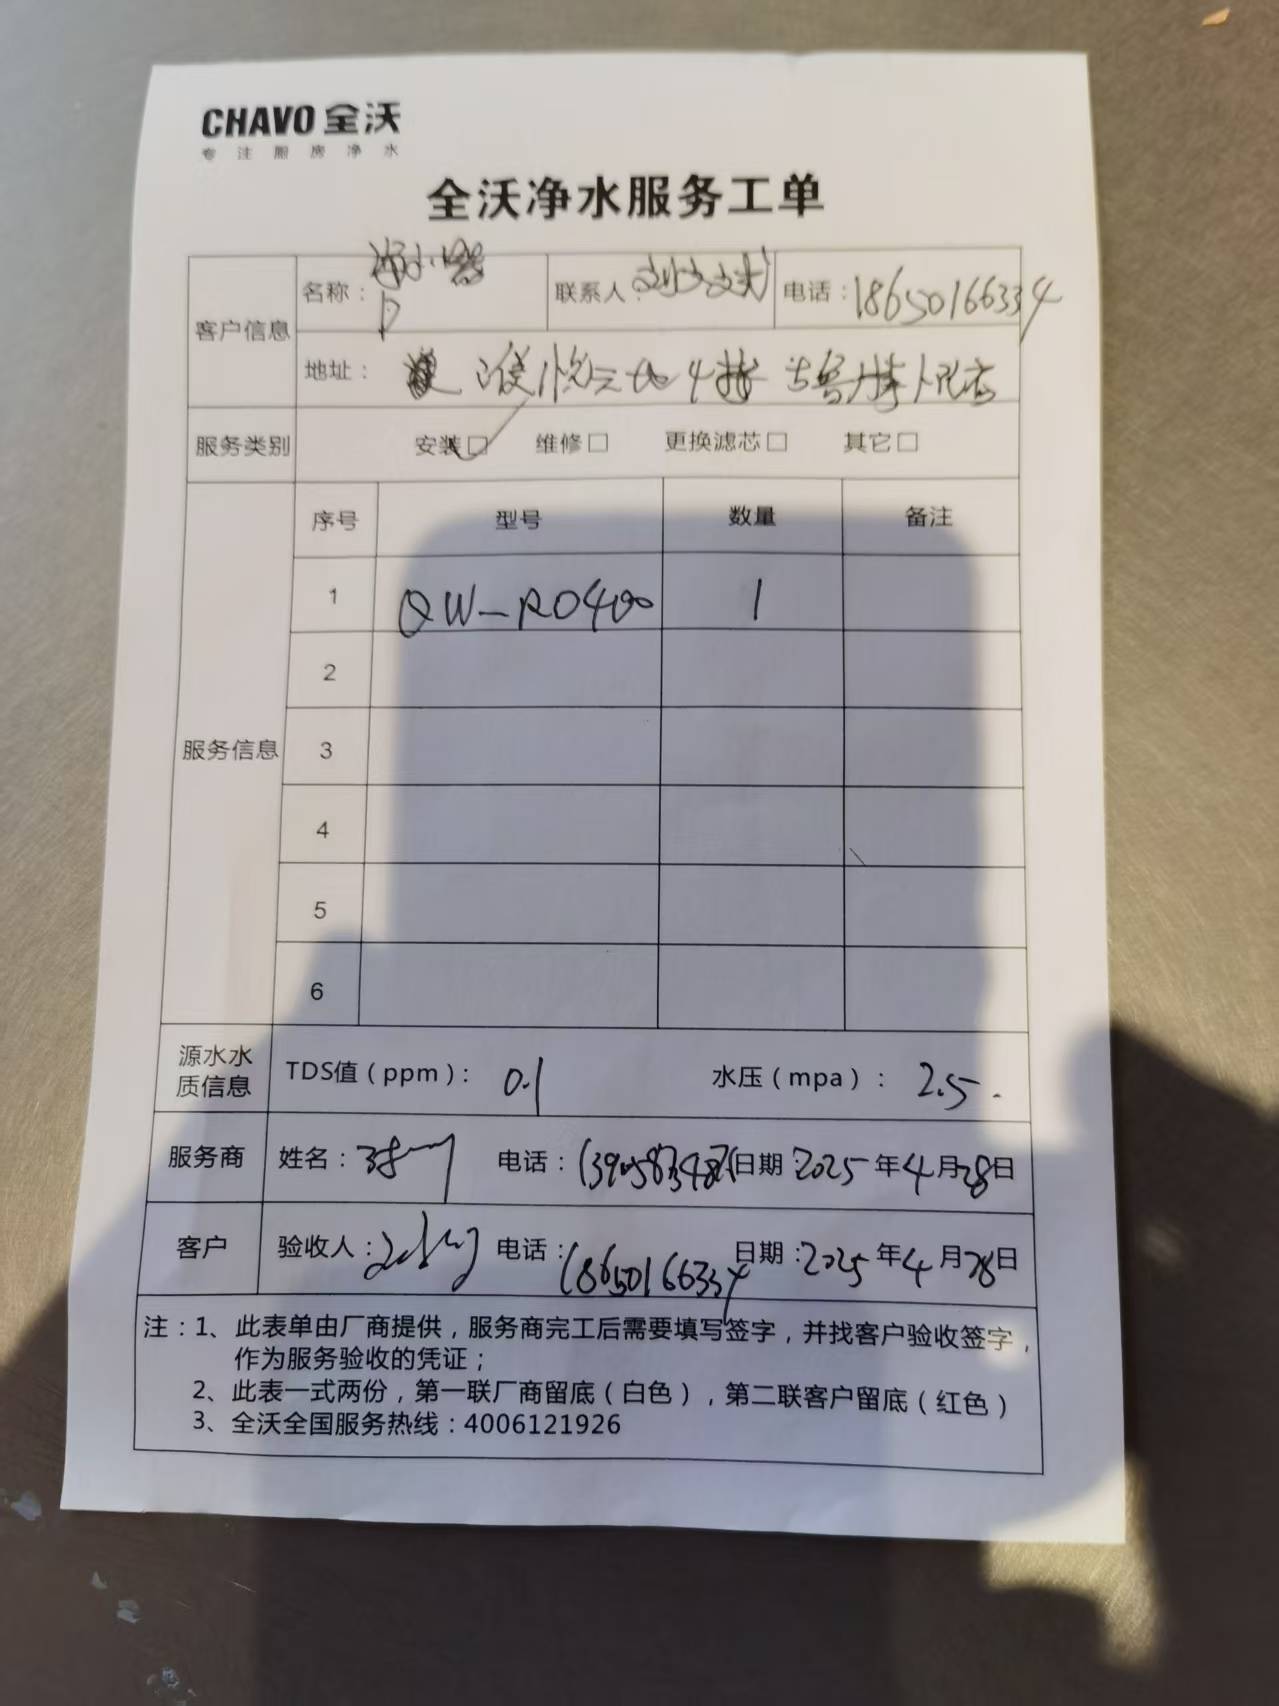 CHAVO 全沃
专注厨房净水
全沃净水服务工单
客户信息
名称：
联系人：
电话：18650166334
地址：
服务类别
安装☑ 维修□ 更换滤芯□ 其它□
服务信息
序号 型号 数量 备注
1 QW-RO400 1
2
3
4
5
6
源水水质信息
TDS值（ppm）： 0.1 水压（mpa）： 2.5.
服务商 姓名： 电话： 日期 2025年4月28日
客户 验收人： 电话：18650166334 日期：2025年4月28日
注：1、此表单由厂商提供，服务商完工后需要填写签字，并找客户验收签字，
作为服务验收的凭证；
2、此表一式两份，第一联厂商留底（白色），第二联客户留底（红色）
3、全沃全国服务热线：4006121926